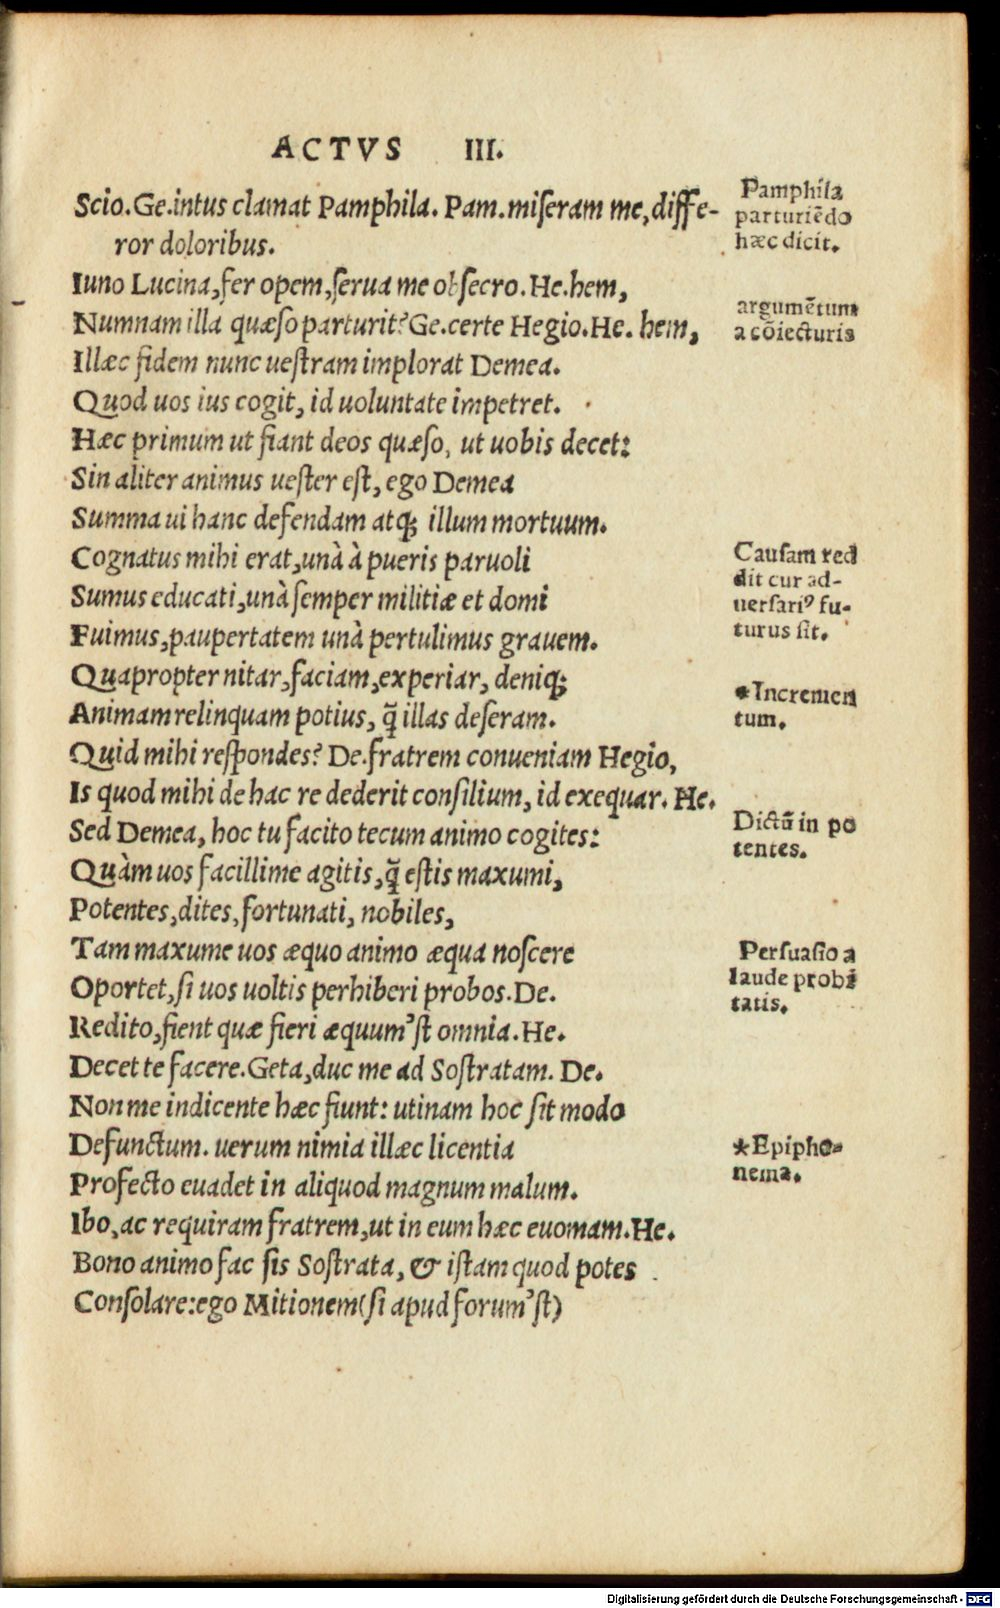 ACTVS III.
Scio. Ge. intus clamat Pamphila. Pam. miſeram me, diffe-
ror doloribus.
Iuno Lucina, fer opem, ſerua me obſecro. He. hem,
Numnam illa quæſo parturit? Ge. certe Hegio. He. hem,
Illæc fidem nunc ueſtram implorat Demea.
Quod uos ius cogit, id uoluntate impetret.
Hæc primum ut fiant deos quæſo, ut uobis decet:
Sin aliter animus ueſter eſt, ego Demea
Summa ui hanc defendam atq; illum mortuum.
Cognatus mihi erat, unà à pueris paruoli
Sumus educati, unà ſemper militiæ et domi
Fuimus, paupertatem unà pertulimus grauem.
Quapropter nitar, faciam, experiar, deniq;
Animam relinquam potius, q̃ illas deſeram.
Quid mihi reſpondes? De. fratrem conueniam Hegio,
Is quod mihi de hac re dederit conſilium, id exequar. He.
Sed Demea, hoc tu facito tecum animo cogites:
Quàm uos facillime agitis, q̃ eſtis maxumi,
Potentes, dites, fortunati, nobiles,
Tam maxume uos æquo animo æqua noſcere
Oportet, ſi uos uoltis perhiberi probos. De.
Redito, fient quæ fieri æquum'ſt omnia. He.
Decet te facere. Geta, duc me ad Soſtratam. De.
Non me indicente hæc fiunt: utinam hoc ſit modo
Defunctum. uerum nimia illæc licentia
Profecto euadet in aliquod magnum malum.
Ibo, ac requiram fratrem, ut in eum hæc euomam. He.
Bono animo fac ſis Soſtrata, & iſtam quod potes
Conſolare: ego Mitionem (ſi apud forum'ſt)
Pamphila
parturiẽdo
hæc dicit.
argumẽtum
a cõiecturis
Cauſam red
dit cur ad-
uerſariꝰ fu-
turus ſit.
*Incremen
tum.
Dictũ in po
tentes.
Perſuaſio a
laude probi
tatis.
*Epipho-
nema.
Digitalisierung gefördert durch die Deutsche Forschungsgemeinschaft - DFG